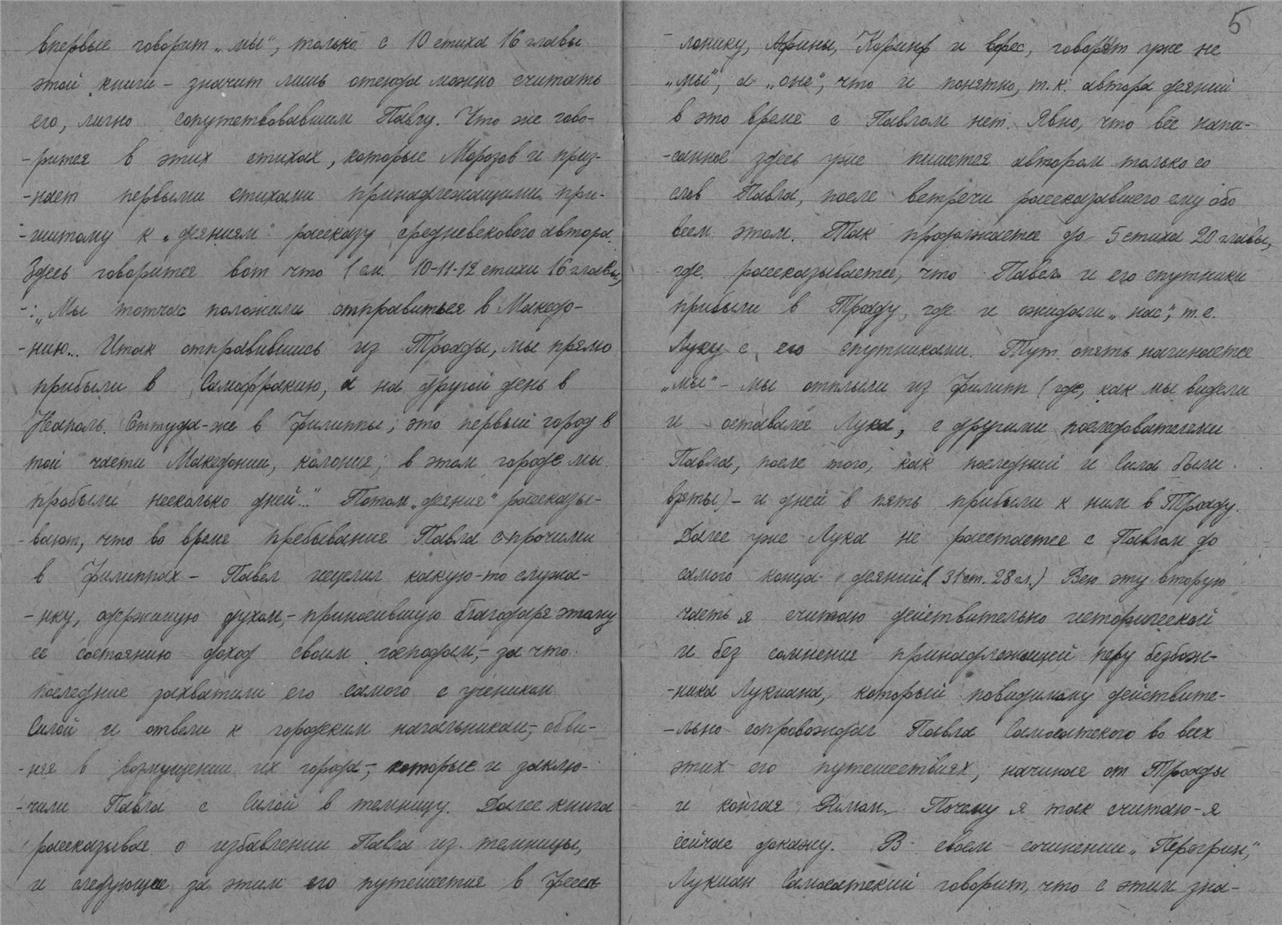 впервые говорит „мы", только с 10 стиха 16 главы
этой книги – значит лишь отсюда можно считать
его, лично сопутствовавшим Павлу. Что же гово-
-рится в этих стихах, которые Морозов и приз-
-нает первыми стихами принадлежащими при-
-шитому к „деяниям" рассказу средневекового автора.
Здесь говорится вот что (см. 10-11-12 стихи 16 главы)
-: „Мы тотчас положили отправиться в Македо-
-нию... Итак отправившись из Троады, мы прямо
прибыли в Самофракию, а на другой день в
Неаполь. Оттуда-же в Филиппы; это первый город в
той части Македонии, колония; в этом городе мы
пробыли несколько дней..." Потом „деяния" рассказы-
-вают, что во время пребывания Павла с прочими
в Филиппах – Павел исцелил какую-то служа-
-нку, одержимую духом, – приносившую благодаря этому
ее состоянию доход своим господам, – за что
последние захватили его самого с учеником
Силой и отвели к городским начальникам, – обви-
-няя в возмущении их города –, которые и заклю-
-чили Павла с Силой в темницу. Далее книга
рассказывая о избавлении Павла из темницы,
и следующее за этим его путешествие в Фесса-
5
-лонику, Афины, Коринф и Ефес, говорят уже не
„мы", а „они", что и понятно, т.к. автора деяний
в это время с Павлом нет. Явно, что все напи-
-санное здесь уже пишется автором только со
слов Павла, после встречи рассказавшего ему обо
всем этом. Так продолжается до 5 стиха 20 главы,
где рассказывается, что Павел и его спутники
прибыли в Троаду, где и ожидали „нас", т.е.
Луку с его спутниками. Тут опять начинается
„мы" – мы отплыли из Филипп (где, как мы видели
и оставался Лука, с другими последователями
Павла, после того, как последний и Сила были
взяты) – и дней в пять прибыли к ним в Троаду.
Далее уже Лука не расстается с Павлом до
самого конца деяний (31 ст. 28 гл.) Всю эту вторую
часть я считаю действительно исторической
и без сомнения принадлежащей перу безбож-
-ника Лукиана, который повидимому действите-
-льно сопровождал Павла Самосатского во всех
этих его путешествиях, начиная от Троады
и кончая Римом. Почему я так считаю – я
сейчас докажу. В своем сочинении „Перегрин",
Лукиан Самосатский говорит, что с этим зна-